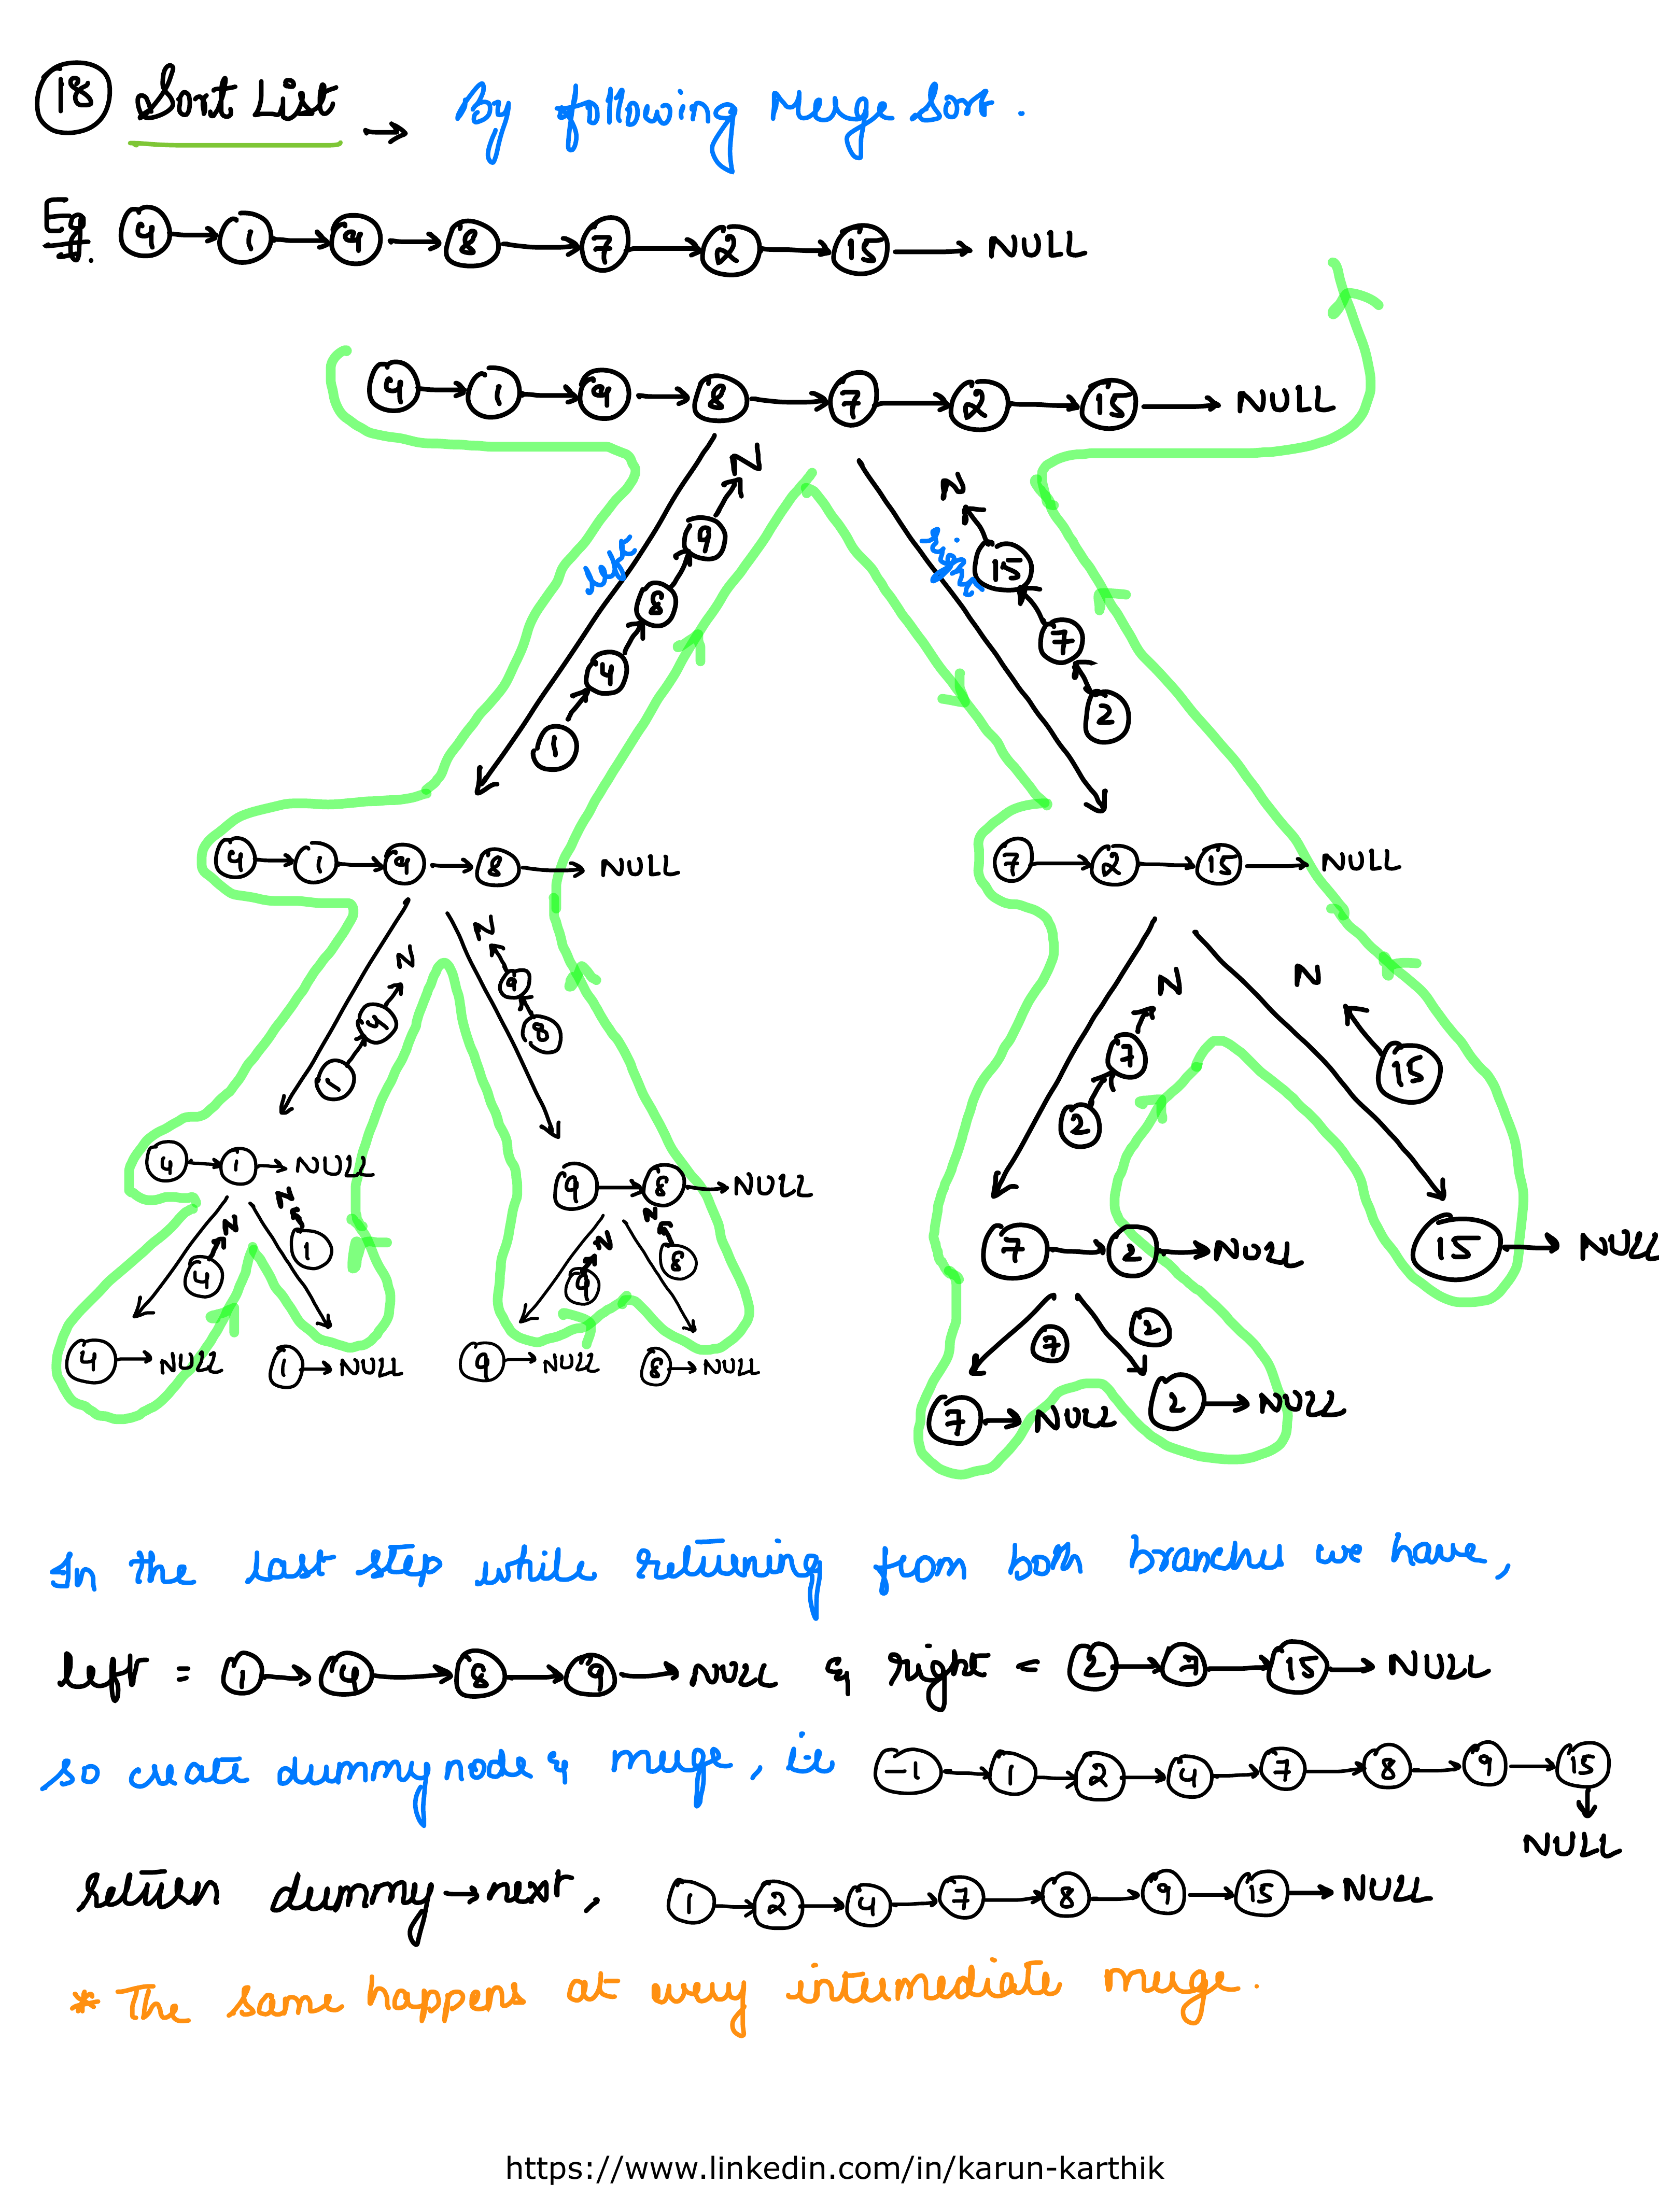 18 Sort List → By following Merge Sort.
Eg. 4 → 1 → 9 → 8 → 7 → 2 → 15 → NULL
4 → 1 → 9 → 8 → 7 → 2 → 15 → NULL
left 1 → 4 → 8 → 9 → N
right 2 → 7 → 15 → N
4 → 1 → 9 → 8 → NULL
7 → 2 → 15 → NULL
1 → 4 → N
8 → 9 → N
2 → 7 → N
15 → N
4 → 1 → NULL
9 → 8 → NULL
7 → 2 → NULL
15 → NULL
4 → N
1 → N
9 → N
8 → N
7
2
4 → NULL
1 → NULL
9 → NULL
8 → NULL
7 → NULL
2 → NULL
In the last step while returning from both branches we have,
left = 1 → 4 → 8 → 9 → NULL & right = 2 → 7 → 15 → NULL
so create dummy node & merge, i.e -1 → 1 → 2 → 4 → 7 → 8 → 9 → 15
↓
NULL
return dummy → next, 1 → 2 → 4 → 7 → 8 → 9 → 15 → NULL
* The same happens at every intermediate merge.
https://www.linkedin.com/in/karun-karthik